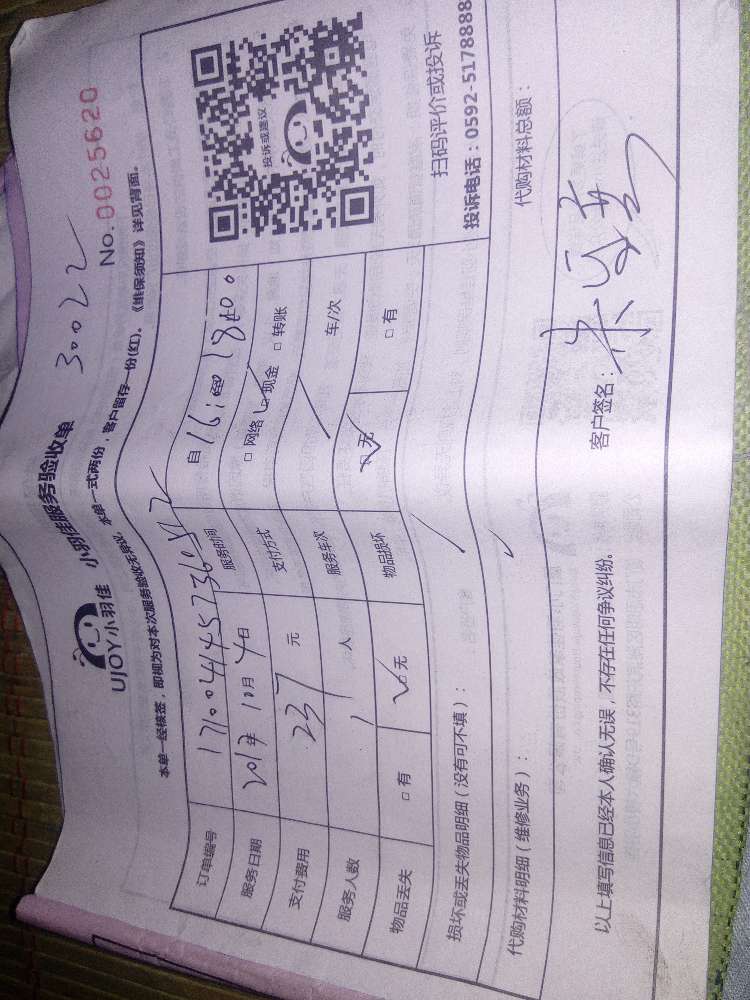 UJOY小羽佳 小羽佳服务验收单 30022
No.0025620
本单一经核签,即视为对本次服务验收无异议, 本单一式两份,客户留存一份(红)。《维保须知》详见背面。
订单编号
服务日期 2017年 10月 4日 服务时间 自
支付费用 237 元 支付方式 □ 网络 □ 现金 □ 转账
服务人数 1 人 服务车次 车/次
物品丢失 □ 有 □ 无 物品损坏 □ 无 □ 有
投诉或建议
扫码评价或投诉
投诉电话:0592-5178888
损坏或丢失物品明细(没有可不填):
代购材料明细(维修业务): 代购材料总额:
以上填写信息已经本人确认无误,不存在任何争议纠纷。 客户签名: